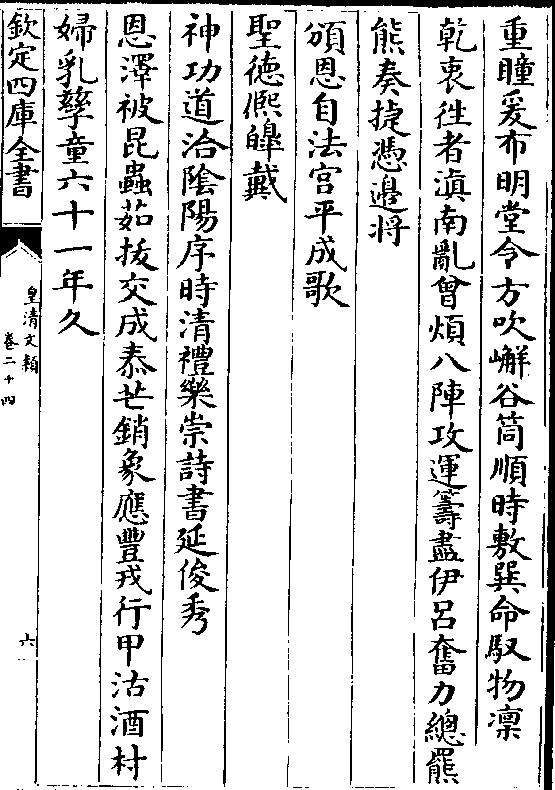 重瞳爰布明堂令方吹嶰谷筒順時敷巽命馭物凜
乾衷徃者滇南亂曾煩八陣攻運籌盡伊呂奮力總羆
熊奏捷憑邉将
頒恩自法宫平成歌
聖徳熈皥戴
神功道洽隂陽序時清禮樂崇詩書延俊秀
恩澤被昆蟲茹拔交成泰芒銷象應豐戎行甲沽酒村
婦乳孳童六十一年久
欽定四庫全書
皇清文穎
卷二十四
六